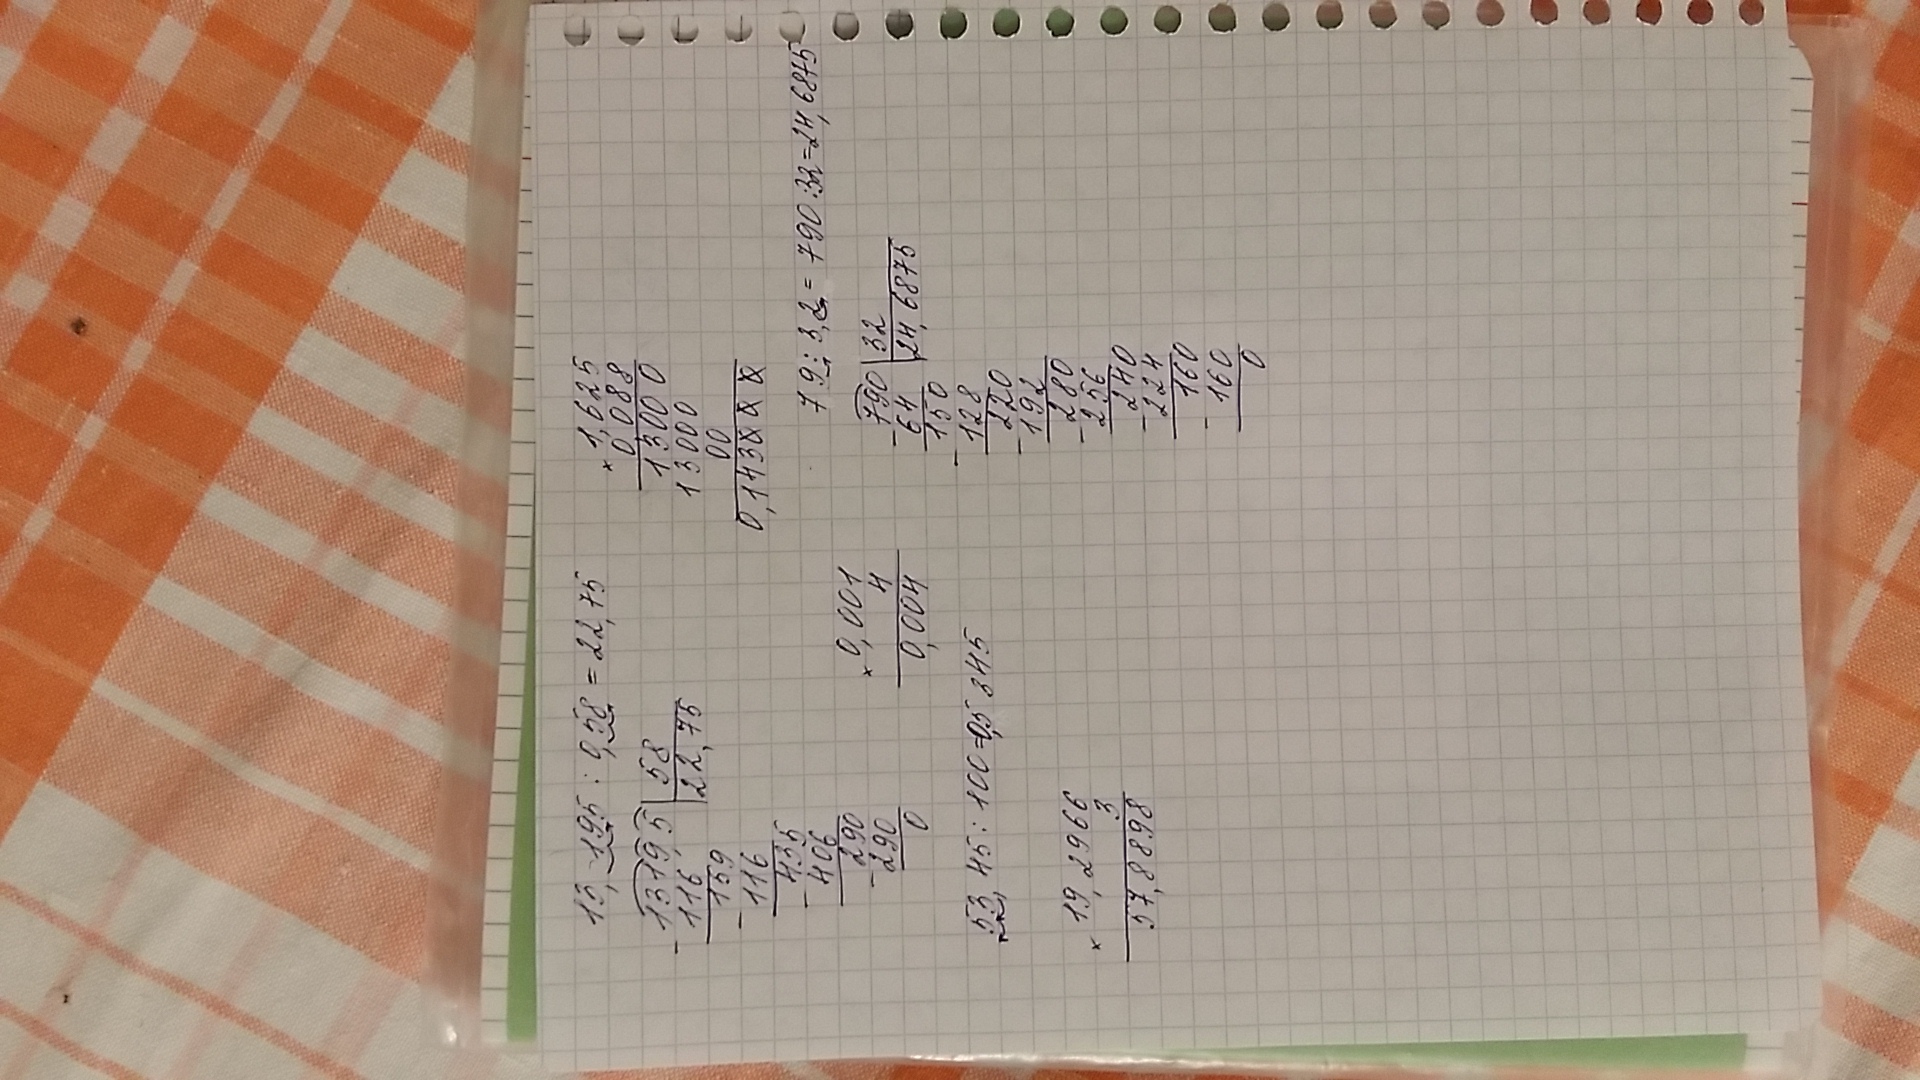 13,195 : 0,58 = 22,75
1319,5 | 58
- 116 | 22,75
159
- 116
435
- 406
290
- 290
0
× 1,625
0,088
13000
13000
00
0,143
× 0,001
4
0,004
79 : 3,2 = 790 : 32 = 24,6875
790 | 32
- 64 | 24,6875
150
- 128
220
- 192
280
- 256
240
- 224
160
- 160
0
53,45 : 100 = 0,5345
× 19,2966
3
57,8898